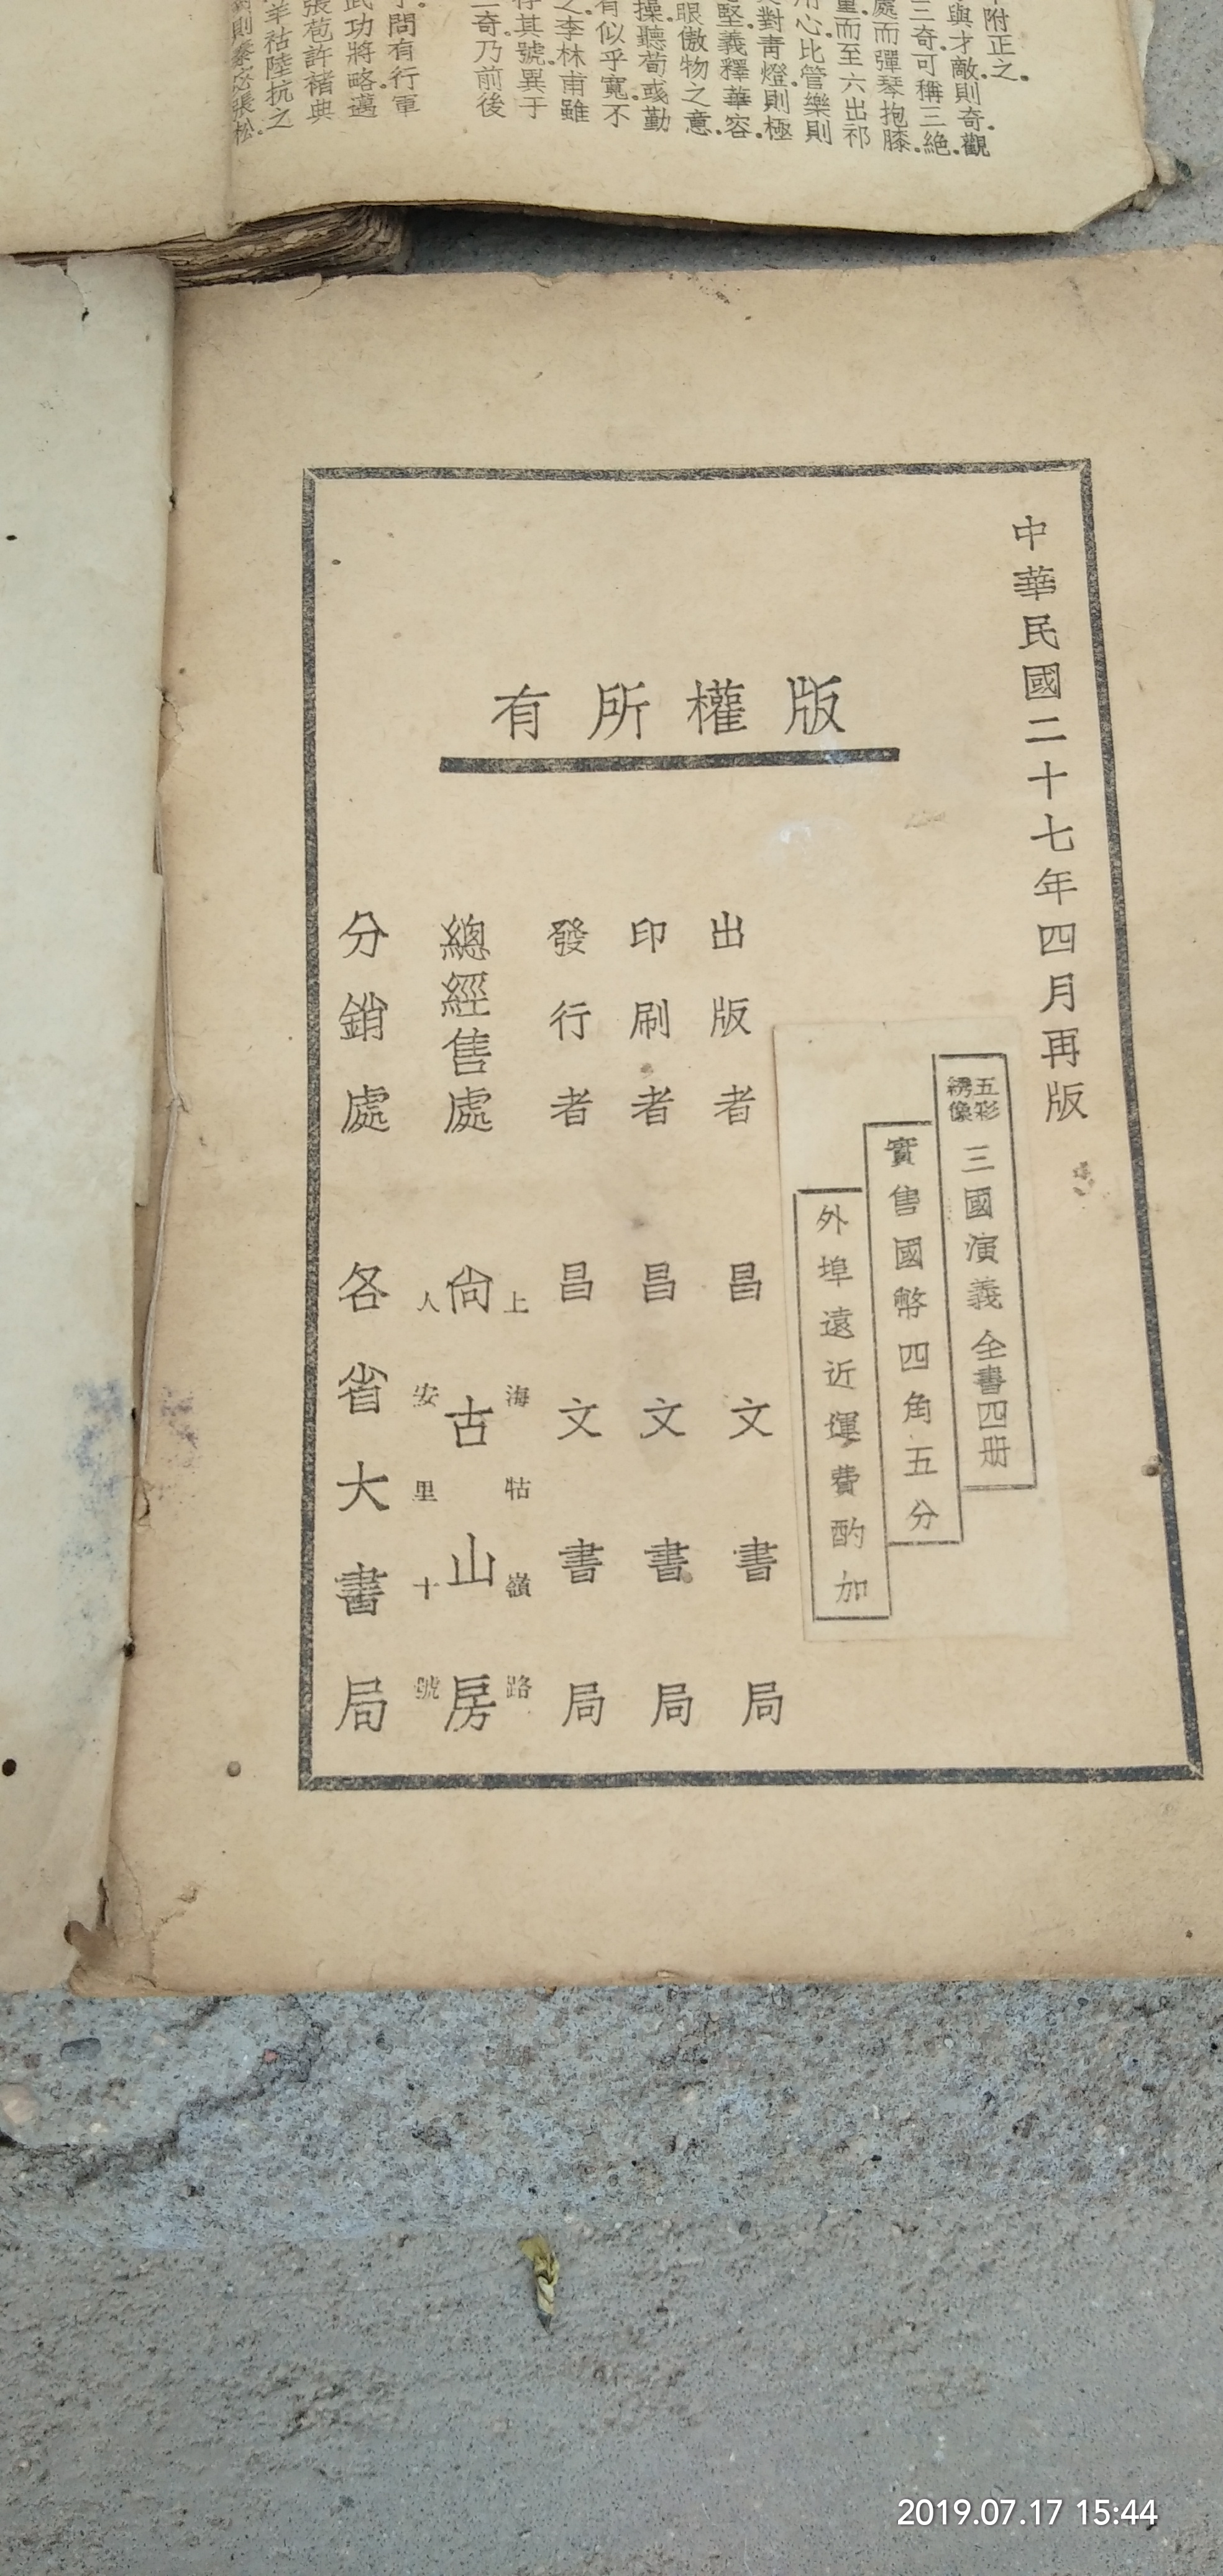 附正之。
與才敵。則奇。觀
三奇。可稱三絕。
處而彈琴抱膝。
而至六出祁
心比管樂則
對青燈。則極
堅。義釋華容。
眼傲物之意。
操。聽荀彧勤
有似乎寬。不
之。李林甫雖
存其號。異于
奇。乃前後
問有行軍
武功將略。邁
張苞許褚典
羊祜陸抗之
則秦宓張松。
中華民國二十七年四月再版
版權所有
五彩繡像 三國演義 全書四册
實售國幣四角五分
外埠遠近運費酌加
出版者 昌文書局
印刷者 昌文書局
發行者 昌文書局
上海牯嶺路
總經售處 尙古山房
人安里十號
分銷處 各省大書局
2019.07.17 15:44